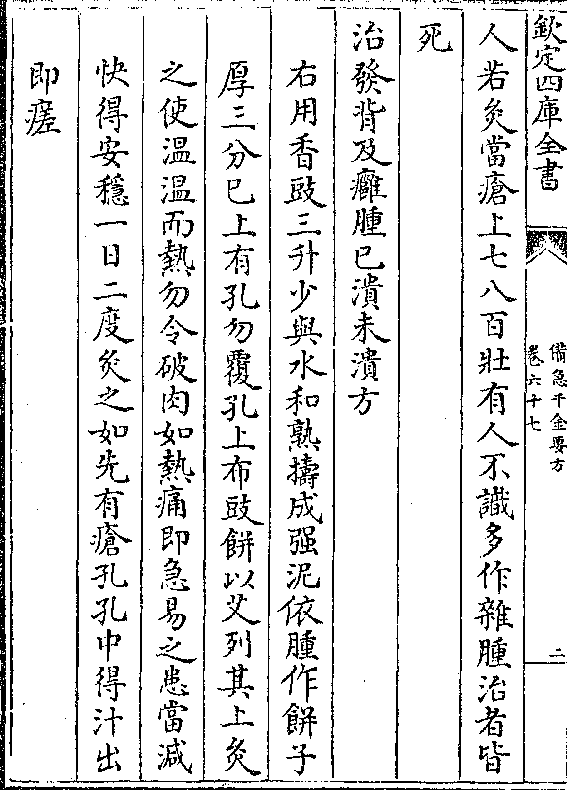 欽定四庫全書
備急千金要方
卷六十七
二
人若灸當瘡上七八百壯有人不識多作雜腫治者皆
死
治發背及癰腫已潰未潰方
右用香豉三升少與水和熟擣成强泥依腫作餅子
厚三分已上有孔勿覆孔上布豉餅以艾列其上灸
之使溫溫而熱勿令破肉如熱痛即急易之患當減
快得安穩一日二度灸之如先有瘡孔孔中得汁出
即瘥